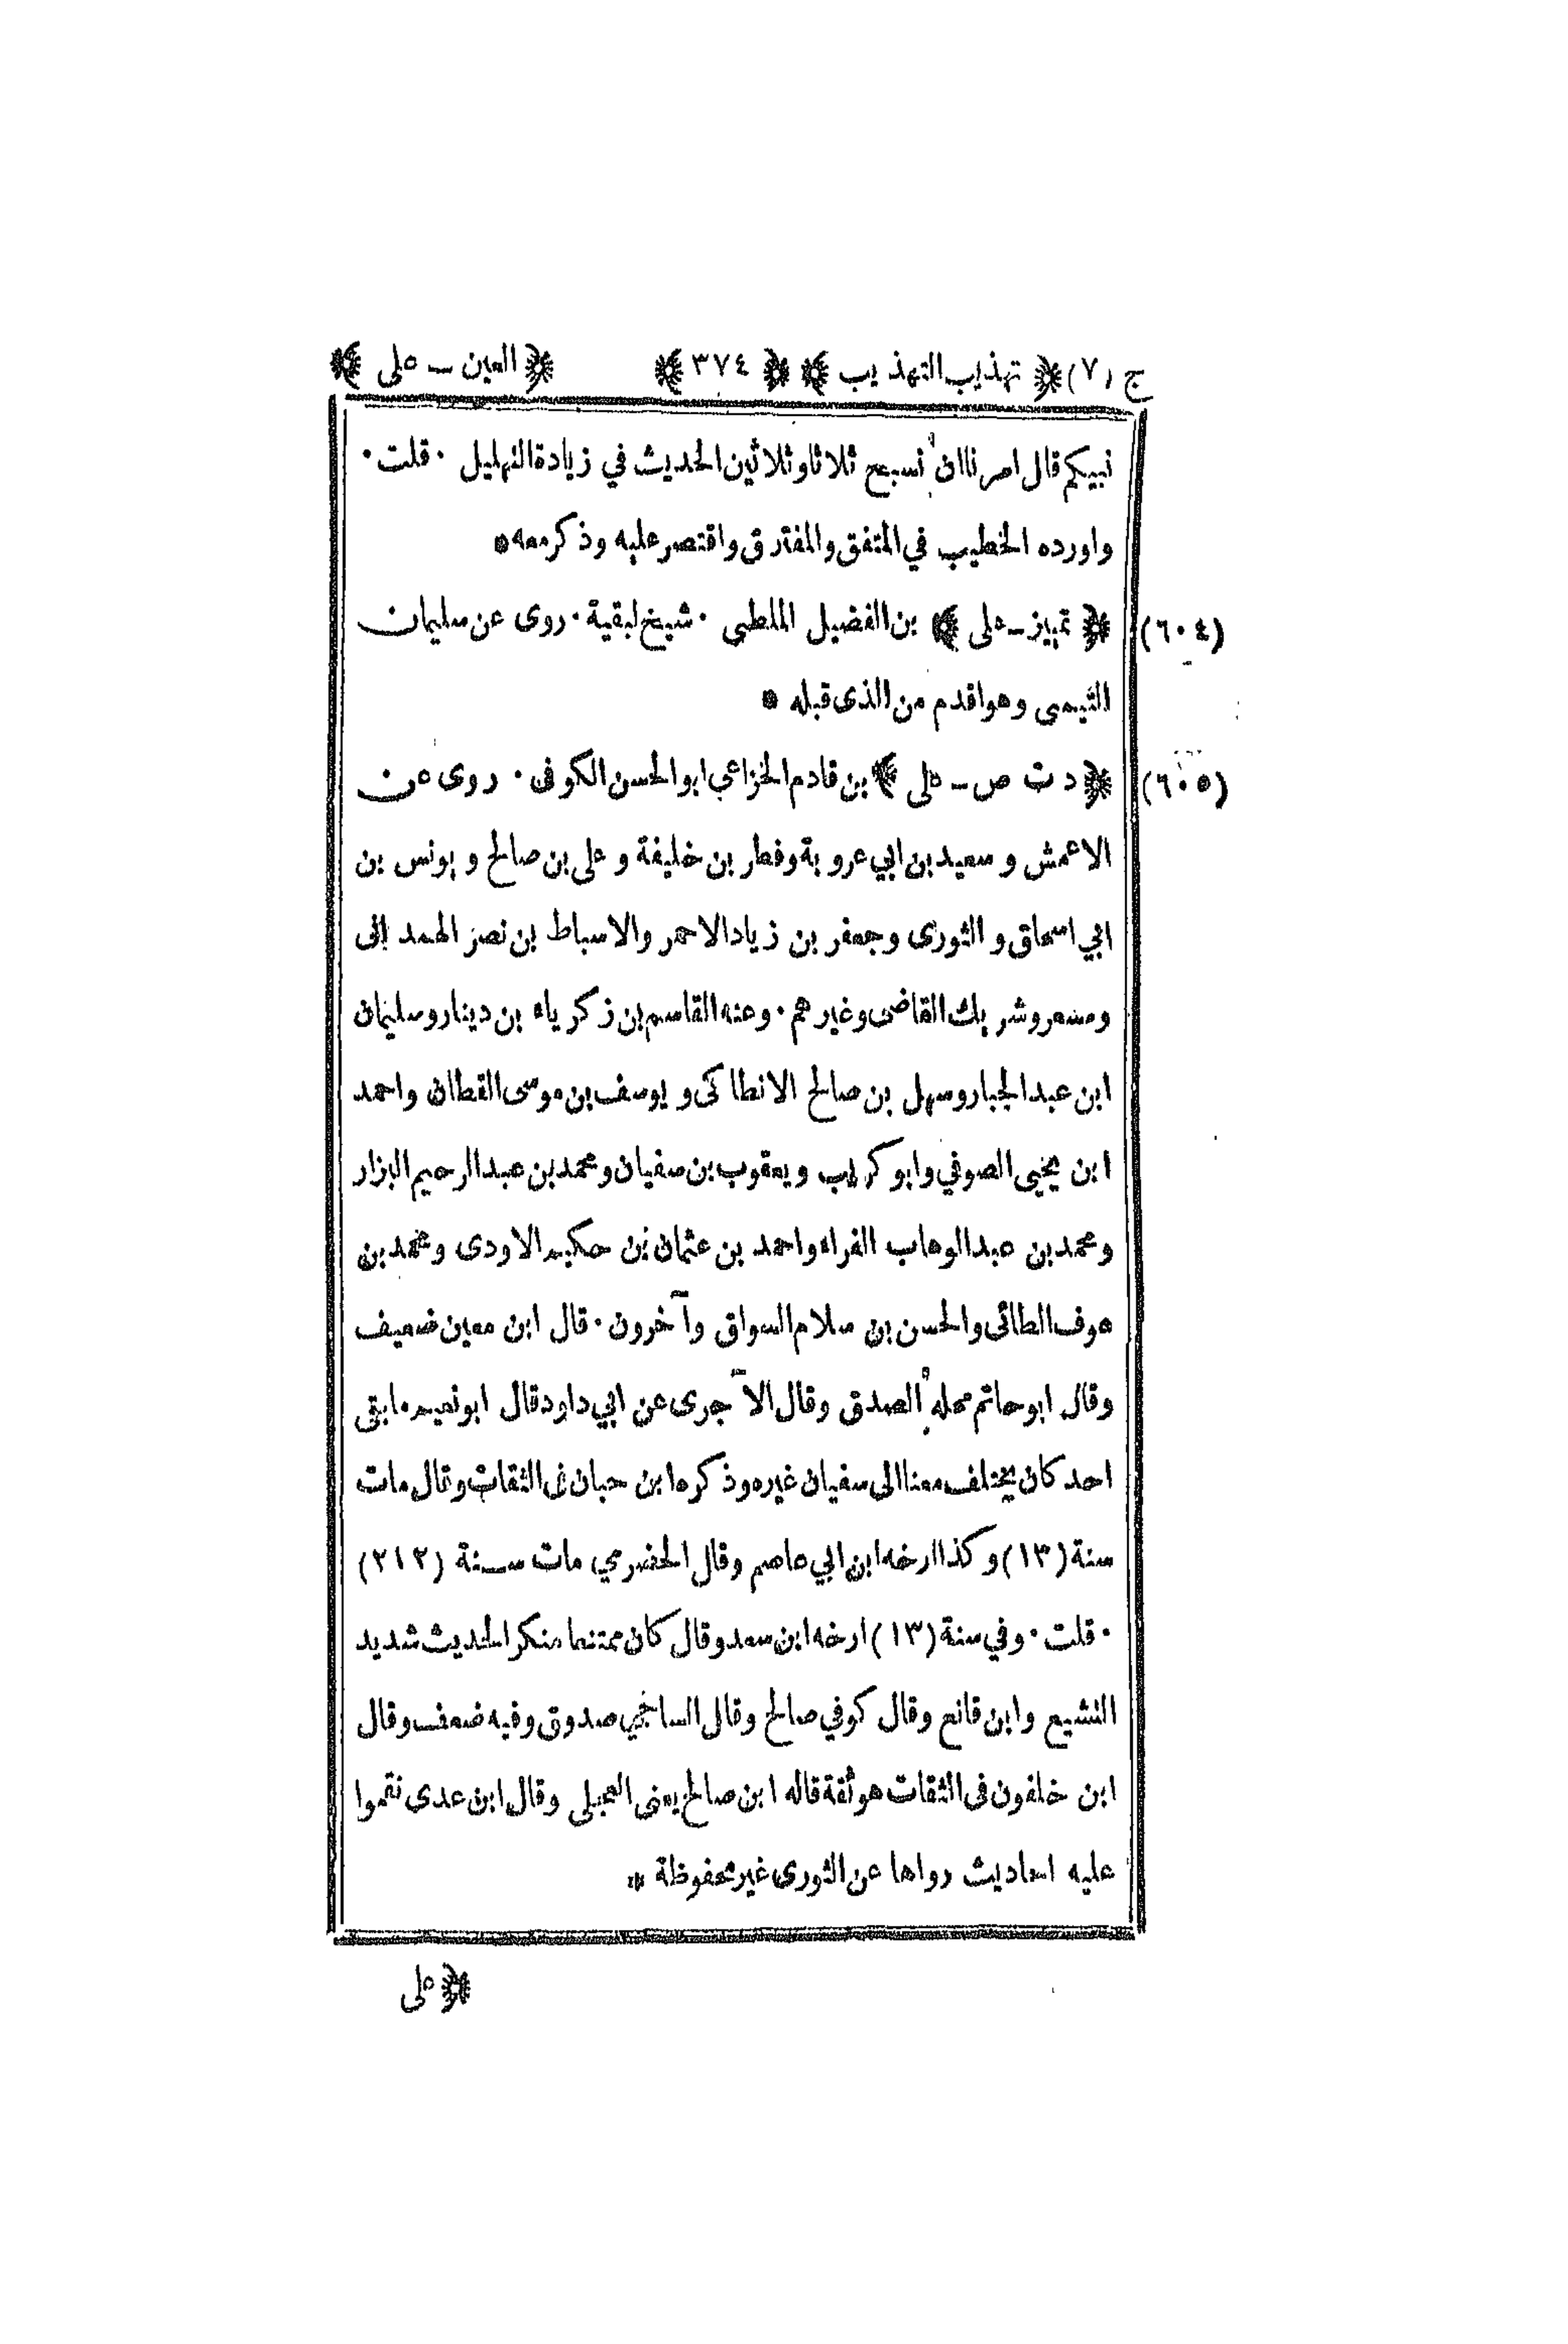 ج (٧) ﴿ تهذيب التهذيب ﴾ ﴿ ٣٧٤ ﴾ ﴿ العين - على ﴾
نبيكم قال امرنا ان نسبح ثلاثا وثلاثين الحديث في زيادة التهليل · قلت ·
واورده الخطيب في المتفق والمفترق واقتصر عليه وذكر معه *
(٦٠٤) ﴿ تمييز - على ﴾ بن الفضيل الملطى · شيخ لبقية · روى عن سليمان
التيمى وهو اقدم من الذى قبله *
(٦٠٥) ﴿ د ت ص - على ﴾ بن قادم الخزاعي ابو الحسن الكوفى · روى عن
الاعمش و سعيد بن ابي عروبة وفطر بن خليفة و على بن صالح و يونس بن
ابي اسحاق و الثورى وجعفر بن زياد الاحمر والاسباط بن نصر الهمدانى
ومسعر وشريك القاضى وغيرهم · وعنه القاسم بن زكرياء بن دينار وسليمان
ابن عبد الجبار وسهل بن صالح الانطاكى و يوسف بن موسى القطان واحمد
ابن يحيى الصوفي وابو كريب ويعقوب بن سفيان ومحمد بن عبد الرحيم البزار
ومحمد بن عبد الوهاب الفراء واحمد بن عثمان بن حكيم الاودى ومحمد بن
عوف الطائى والحسن بن سلام السواق وآخرون · قال ابن معين ضعيف
وقال ابو حاتم محله الصدق وقال الآجرى عن ابي داود قال ابو نعيم ما بقى
احد كان يختلف معنا الى سفيان غيره وذكره ابن حبان فى الثقات وقال مات
سنة (١٣) وكذا ارخه ابن ابي عاصم وقال الحضرمي مات سنة (٢١٢)
· قلت · وفي سنة (١٣) ارخه ابن سعد وقال كان ممتنعا منكر الحديث شديد
التشيع وابن قانع وقال كوفي صالح وقال الساجي صدوق وفيه ضعف وقال
ابن خلفون فى الثقات هو ثقة قاله ابن صالح يعنى العجلى وقال ابن عدي نقموا
عليه احاديث رواها عن الثورى غير محفوظة *
﴿ على